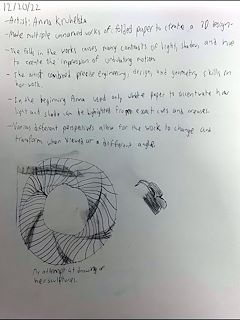 12/20/22
-Artist: Anna Kruhelska
-Made multiple unnamed works of folded paper to create a 3D design.
-The folds in the works uses many contrasts of light, shadow, and hue
to create the impression of undulating motion.
-The artist combined precise engineering, design, and geometry skills in
her work.
-In the beginning Anna used only white paper to accentuate how
light and shade can be highlighted from exact cuts and creases.
-Various different perspectives allow for the work to change and
transform when viewed at a different angle.
My attempt at drawing of
her sculptures.